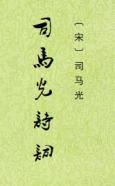 〔宋〕司马光
司馬光詩詞